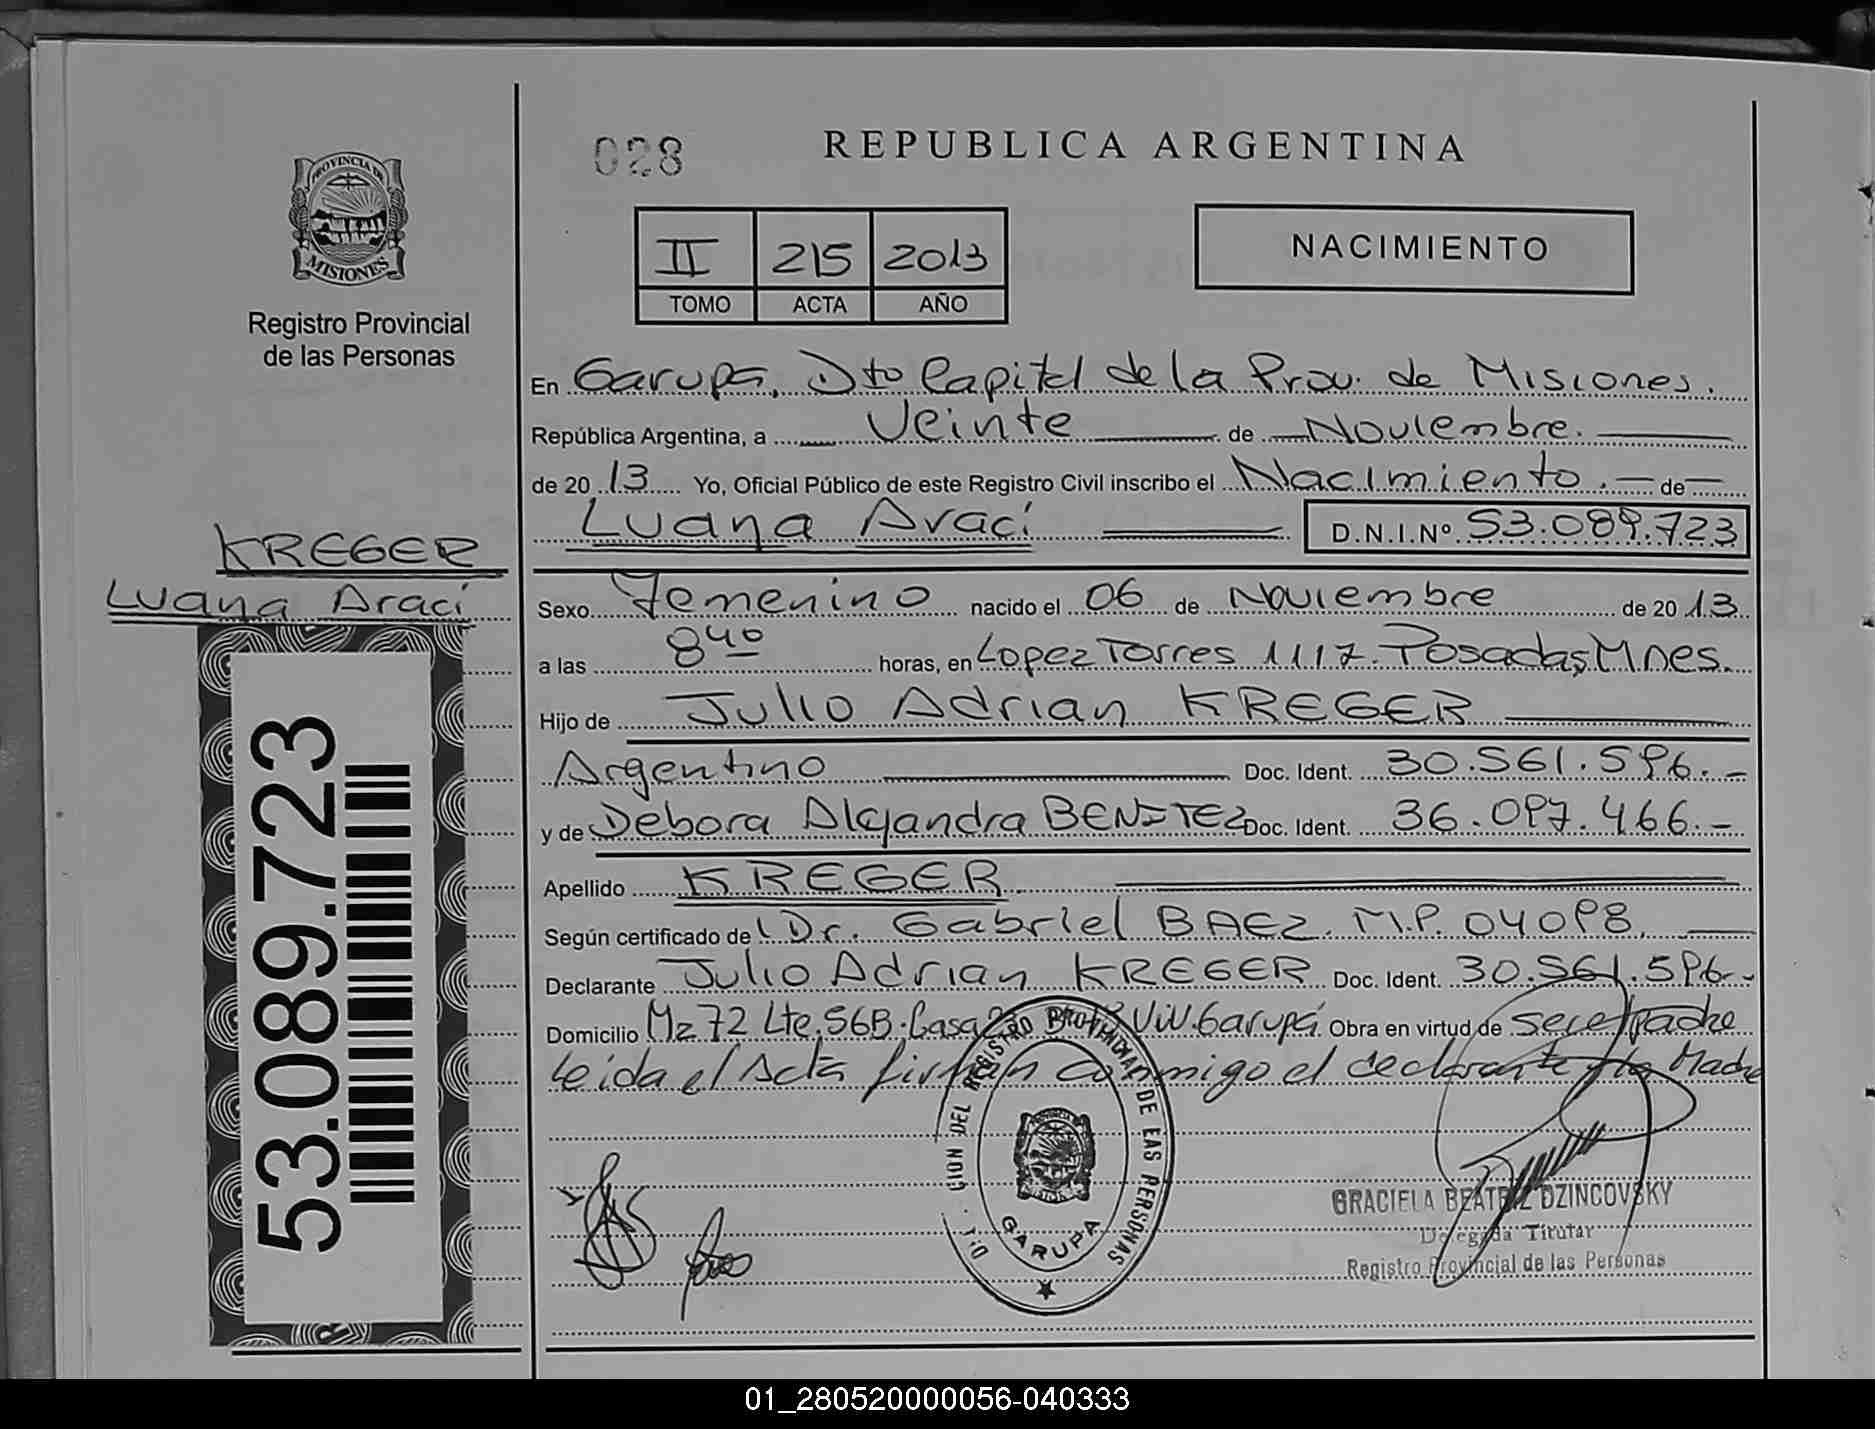 PROVINCIA DE
MISIONES
Registro Provincial
de las Personas
KREGER
Luana Araci
53.089.723
028
REPUBLICA ARGENTINA
II 215 2013
TOMO ACTA AÑO
NACIMIENTO
En Garupa, Dto Capital de la Prov. de Misiones.
República Argentina, a Veinte de Noviembre.
de 2013 Yo, Oficial Público de este Registro Civil inscribo el Nacimiento. de
Luana Araci D.N.I.Nº 53.089.723
Sexo Femenino nacido el 06 de Noviembre de 2013
a las 8 40 horas, en Lopez Torres 1117. Posadas, Mnes.
Hijo de Julio Adrian KREGER
Argentino Doc. Ident. 30.561.596.-
y de Debora Alejandra BENITEZ Doc. Ident. 36.097.466.-
Apellido KREGER
Según certificado de Dr. Gabriel BAEZ. M.P. 04098.
Declarante Julio Adrian KREGER Doc. Ident. 30.561.596.-
Domicilio Mz 72 Lte. 56B. Casa Viv. Garupá. Obra en virtud de ser el padre
Leida el Acta firman conmigo el declarante y la Madre
REGISTRO PROVINCIAL DE LAS PERSONAS
GARUPA
GRACIELA BEATRIZ DZINCOVSKY
Delegada Titular
Registro Provincial de las Personas
01_280520000056-040333